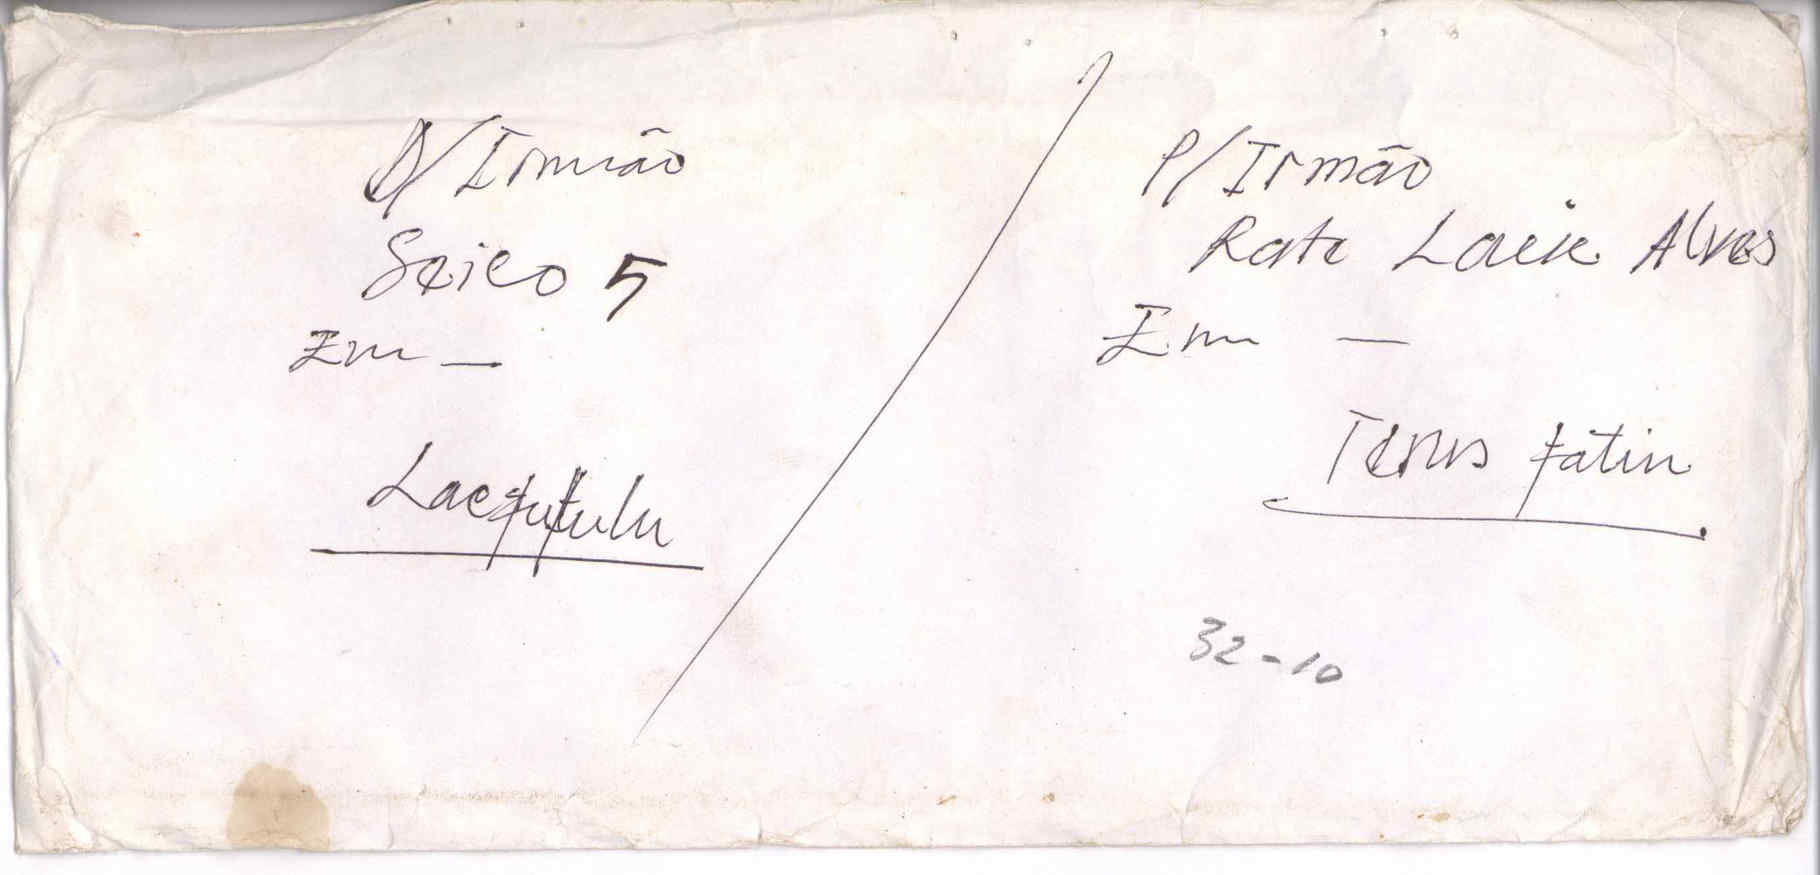 D/Irmão
Seico 5
Em -
Laefufulu
P/Irmão
Rate Laek Alves
Em -
Terus fatin
32-10